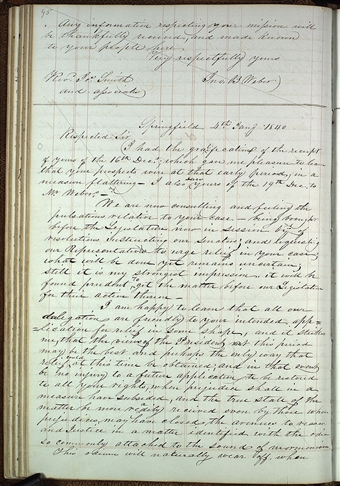 95
Any information respecting your mission will
be thankfully received, and made known
to your people here.
Very respectfully yours
Revd. Jos. Smith Jno. B. Weber
and associates
Springfield 4th Jany. 1840
Respected Sir,
I had the gratification of the receipt
of yours of the 16th Decr., which gave me pleasure to lea-
that your prospects were at that early period, in a
measure flattering. I also saw yours of the 19th Dec. to
Mr Weber.
We are now consulting and feeling the
pulsations relative to your case – being brought
before the Legislature now in session by
resolutions instructing our Senators and requesting
our Representatives to urge relief in your case,
what will be done yet remains uncertain,
still it is my strongest impression, it will be
found prudent to get the matter before our Legislature
for their action thereon –
I am happy to learn that all our
delegation are friendly to yours intended app-
lication for relief in some shape, and it strikes
me, that the views of the President at this period
may be the best and perhaps the only way that
relief at this time be obtained, and in that event
be no injury to a future application to be restored
to all your rights, when prejudice shall in a
measure have subsided, and the true state of the
matter be more readily received even by those whom
prejudice, may have closed the avenues to reason
and Justice in a matter identified with the odium
so commonly attached to the sound of mormonism
This odium will naturally wear off, when